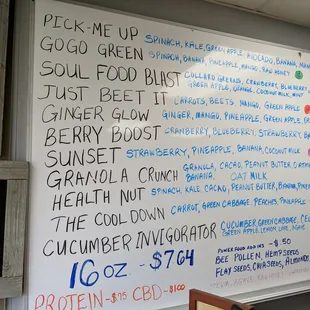 PICK-ME UP SPINACH, KALE, GREEN APPLE, AVOCADO, BANANA,
GOGO GREEN SPINACH, BANANA, PINEAPPLE, MANGO, RAW HONEY
SOUL FOOD BLAST COLLARD GREENS, CRANBERRY, BLUEBERRY
GREEN APPLE, ORANGE, COCONUT MILK, MINT
JUST BEET IT CARROTS, BEETS, MANGO, GREEN APPLE
GINGER GLOW GINGER, MANGO, PINEAPPLE, GREEN APPLE,
BERRY BOOST CRANBERRY, BLUEBERRY, STRAWBERRY,
SUNSET STRAWBERRY, PINEAPPLE, BANANA, COCONUT MILK
GRANOLA CRUNCH GRANOLA, CACAO, PEANUT BUTTER,
BANANA, OAT MILK
HEALTH NUT SPINACH, KALE, CACAO, PEANUT BUTTER, BANANA,
THE COOL DOWN CARROT, GREEN CABBAGE, PEACHES, PINEAPPLE
CUCUMBER INVIGORATOR CUCUMBER, GREEN CABBAGE,
GREEN APPLE, LEMON, LIME, AGAVE
16 OZ - $7.64
POWER FOOD ADD INS - $.50
BEE POLLEN, HEMP SEEDS
FLAX SEEDS, CHIA SEEDS, ALMONDS
PROTEIN - $.95 CBD - $1.00